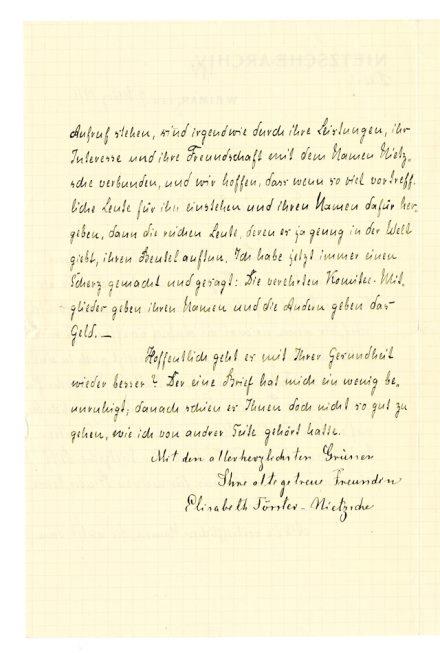 Aufruf stehen, sind irgendwie durch ihre Leistungen, ihr
Interesse und ihre Freundschaft mit dem Namen Nietz-
sche verbunden, und wir hoffen, dass wenn so viel vortreff-
liche Leute für ihn einstehen und ihren Namen dafür her-
geben, dann die reichen Leute, deren es ja genug in der Welt
giebt, ihren Beutel auftun. Ich habe jetzt immer einen
Scherz gemacht und gesagt: Die verehrten Komitee-Mit-
glieder geben ihren Namen und die Andern geben das
Geld. —
Hoffentlich geht es mit Ihrer Gesundheit
wieder besser? Der eine Brief hat mich ein wenig be-
unruhigt; danach schien es Ihnen doch nicht so gut zu
gehen, wie ich von andrer Seite gehört hatte.
Mit den allerherzlichsten Grüssen
Ihre alte getreue Freundin
Elisabeth Förster-Nietzsche